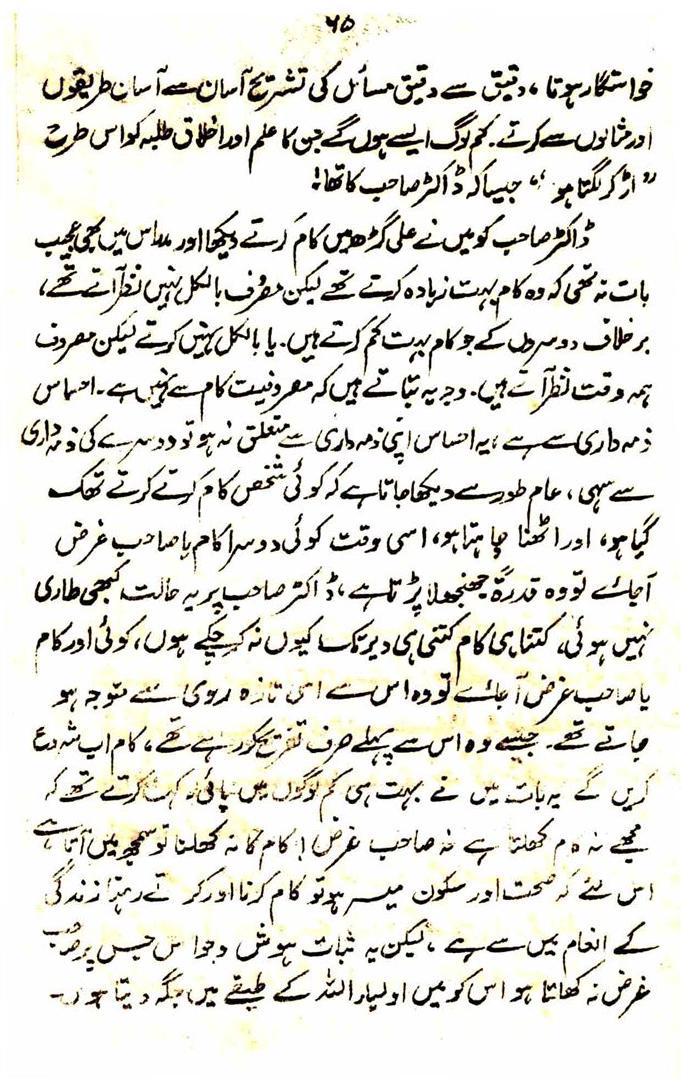 ۶۵
خواستگار ہوتا، دقیق سے دقیق مسائل کی تشریح آسان سے آسان طریقوں
اور مثالوں سے کرتے۔ کم لوگ ایسے ہوں گے جن کا علم اور اخلاق طلبہ کو اس طرح
"اڑ کر لگتا ہو"، جیسا کہ ڈاکٹر صاحب کا تھا!
ڈاکٹر صاحب کو میں نے علی گڑھ میں کام کرتے دیکھا اور اس میں بھی عجیب
بات نہ تھی کہ وہ کام بہت زیادہ کرتے تھے لیکن مصروف بالکل نہیں نظر آتے تھے،
برخلاف دوسروں کے جو کام بہت کم کرتے ہیں۔ یا بالکل نہیں کرتے لیکن مصروف
ہمہ وقت نظر آتے ہیں۔ وجہ یہ بتاتے ہیں کہ مصروفیت کام سے نہیں ہے۔ احساس
ذمہ داری سے ہے، یہ احساس اپنی ذمہ داری سے متعلق نہ ہو تو دوسرے کی ذمہ داری
سے سہی، عام طور سے دیکھا جاتا ہے کہ کوئی شخص کام کرتے کرتے تھک
گیا ہو، اور اٹھنا چاہتا ہو، اسی وقت کوئی دوسرا کام یا صاحب غرض
آجائے تو وہ قدرۃً جھنجھلا پڑتا ہے، ڈاکٹر صاحب پر یہ حالت کبھی طاری
نہیں ہوئی، کتنا ہی کام کتنی ہی دیر تک کیوں نہ کر چکے ہوں، کوئی اور کام
یا صاحب غرض آجائے تو وہ اس سے اس تازہ روی سے متوجہ ہو
جاتے تھے۔ جیسے وہ اس سے پہلے صرف تفریح کر رہے تھے، کام اب شروع
کریں گے یہ بات میں نے بہت ہی کم لوگوں میں پائی۔ کہا کرتے تھے کہ
مجھے نہ کام کھلتا ہے نہ صاحب غرض! کام کا نہ کھلنا تو سمجھ میں آتا ہے
اس لئے کہ صحت اور سکون میسر ہو تو کام کرنا اور کرتے رہنا زندگی
کے انعام میں سے ہے، لیکن یہ ثبات ہوش و حواس جس پر صاحب
غرض نہ کھلتا ہو اس کو میں اولیاء اللہ کے طبقے میں جگہ دیتا ہوں۔